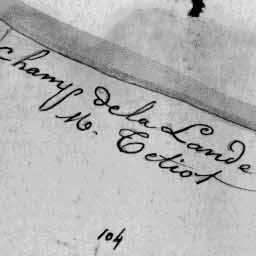 champ de la Lande
M. Tetiot
104